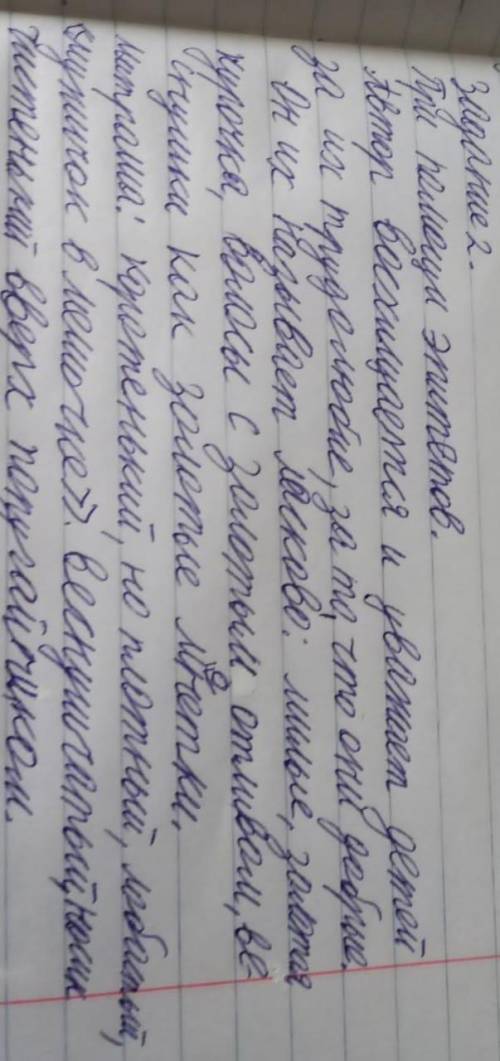 Задание 2.
При помощи эпитетов.
Автор восхищается и уважает детей
за их трудолюбие, за то, что они добрые.
Он их называет ласково: милые, золотая
курочка, волосы с золотым отливом, ве-
снушки как золотые монетки.
Митраша: коротенький, но плотный, лобастый,
«мужичок в мешочке». Веснушчатый, носик
чистенький вверх попугайчиком.